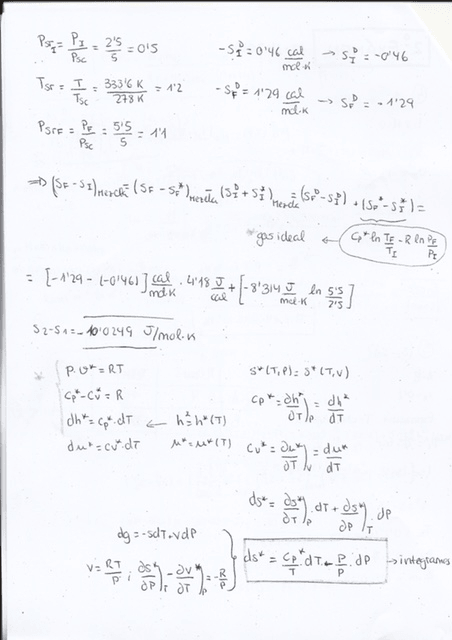 PSr_I = P_I/P_SC = 2'5/5 = 0'5
-S_I^D = 0'46 cal/mol·K → S_I^D = -0'46
T_Sr = T/T_SC = 333'6 K/278 K = 1'2
-S_F^D = 1'29 cal/mol·K → S_F^D = -1'29
P_SrF = P_F/P_SC = 5'5/5 = 1'1
⇒ (S_F - S_I)_Mezcla = (S_F - S_F^*)_Mezcla - (S_I^D + S_I^*)_Mezcla = (S_F^D - S_I^D) + (S_F^* - S_I^*) =
*gas ideal ← C_P^* ln T_F/T_I - R ln P_F/P_I
= [-1'29 - (-0'46)] cal/mol·K · 4'18 J/cal + [-8'314 J/mol·K ln 5'5/2'5]
S_2 - S_1 = -10'0249 J/mol·K
* P·v^* = RT
C_P^* - C_V^* = R
dh^* = C_P^*·dT ← h^* = h^*(T)
du^* = C_V^*·dT u^* = u^*(T)
s^*(T,P) = s^*(T,v)
C_P^* = ∂h^*/∂T)_P = dh^*/dT
C_V^* = ∂u^*/∂T)_V = du^*/dT
ds^* = ∂s^*/∂T)_P · dT + ∂s^*/∂P)_T dP
dg = -sdT + vdP
v = RT/P ; ∂s^*/∂P)_T - ∂v^*/∂T)_P = -R/P
ds^* = C_P^*/T dT - R/P · dP → integramos